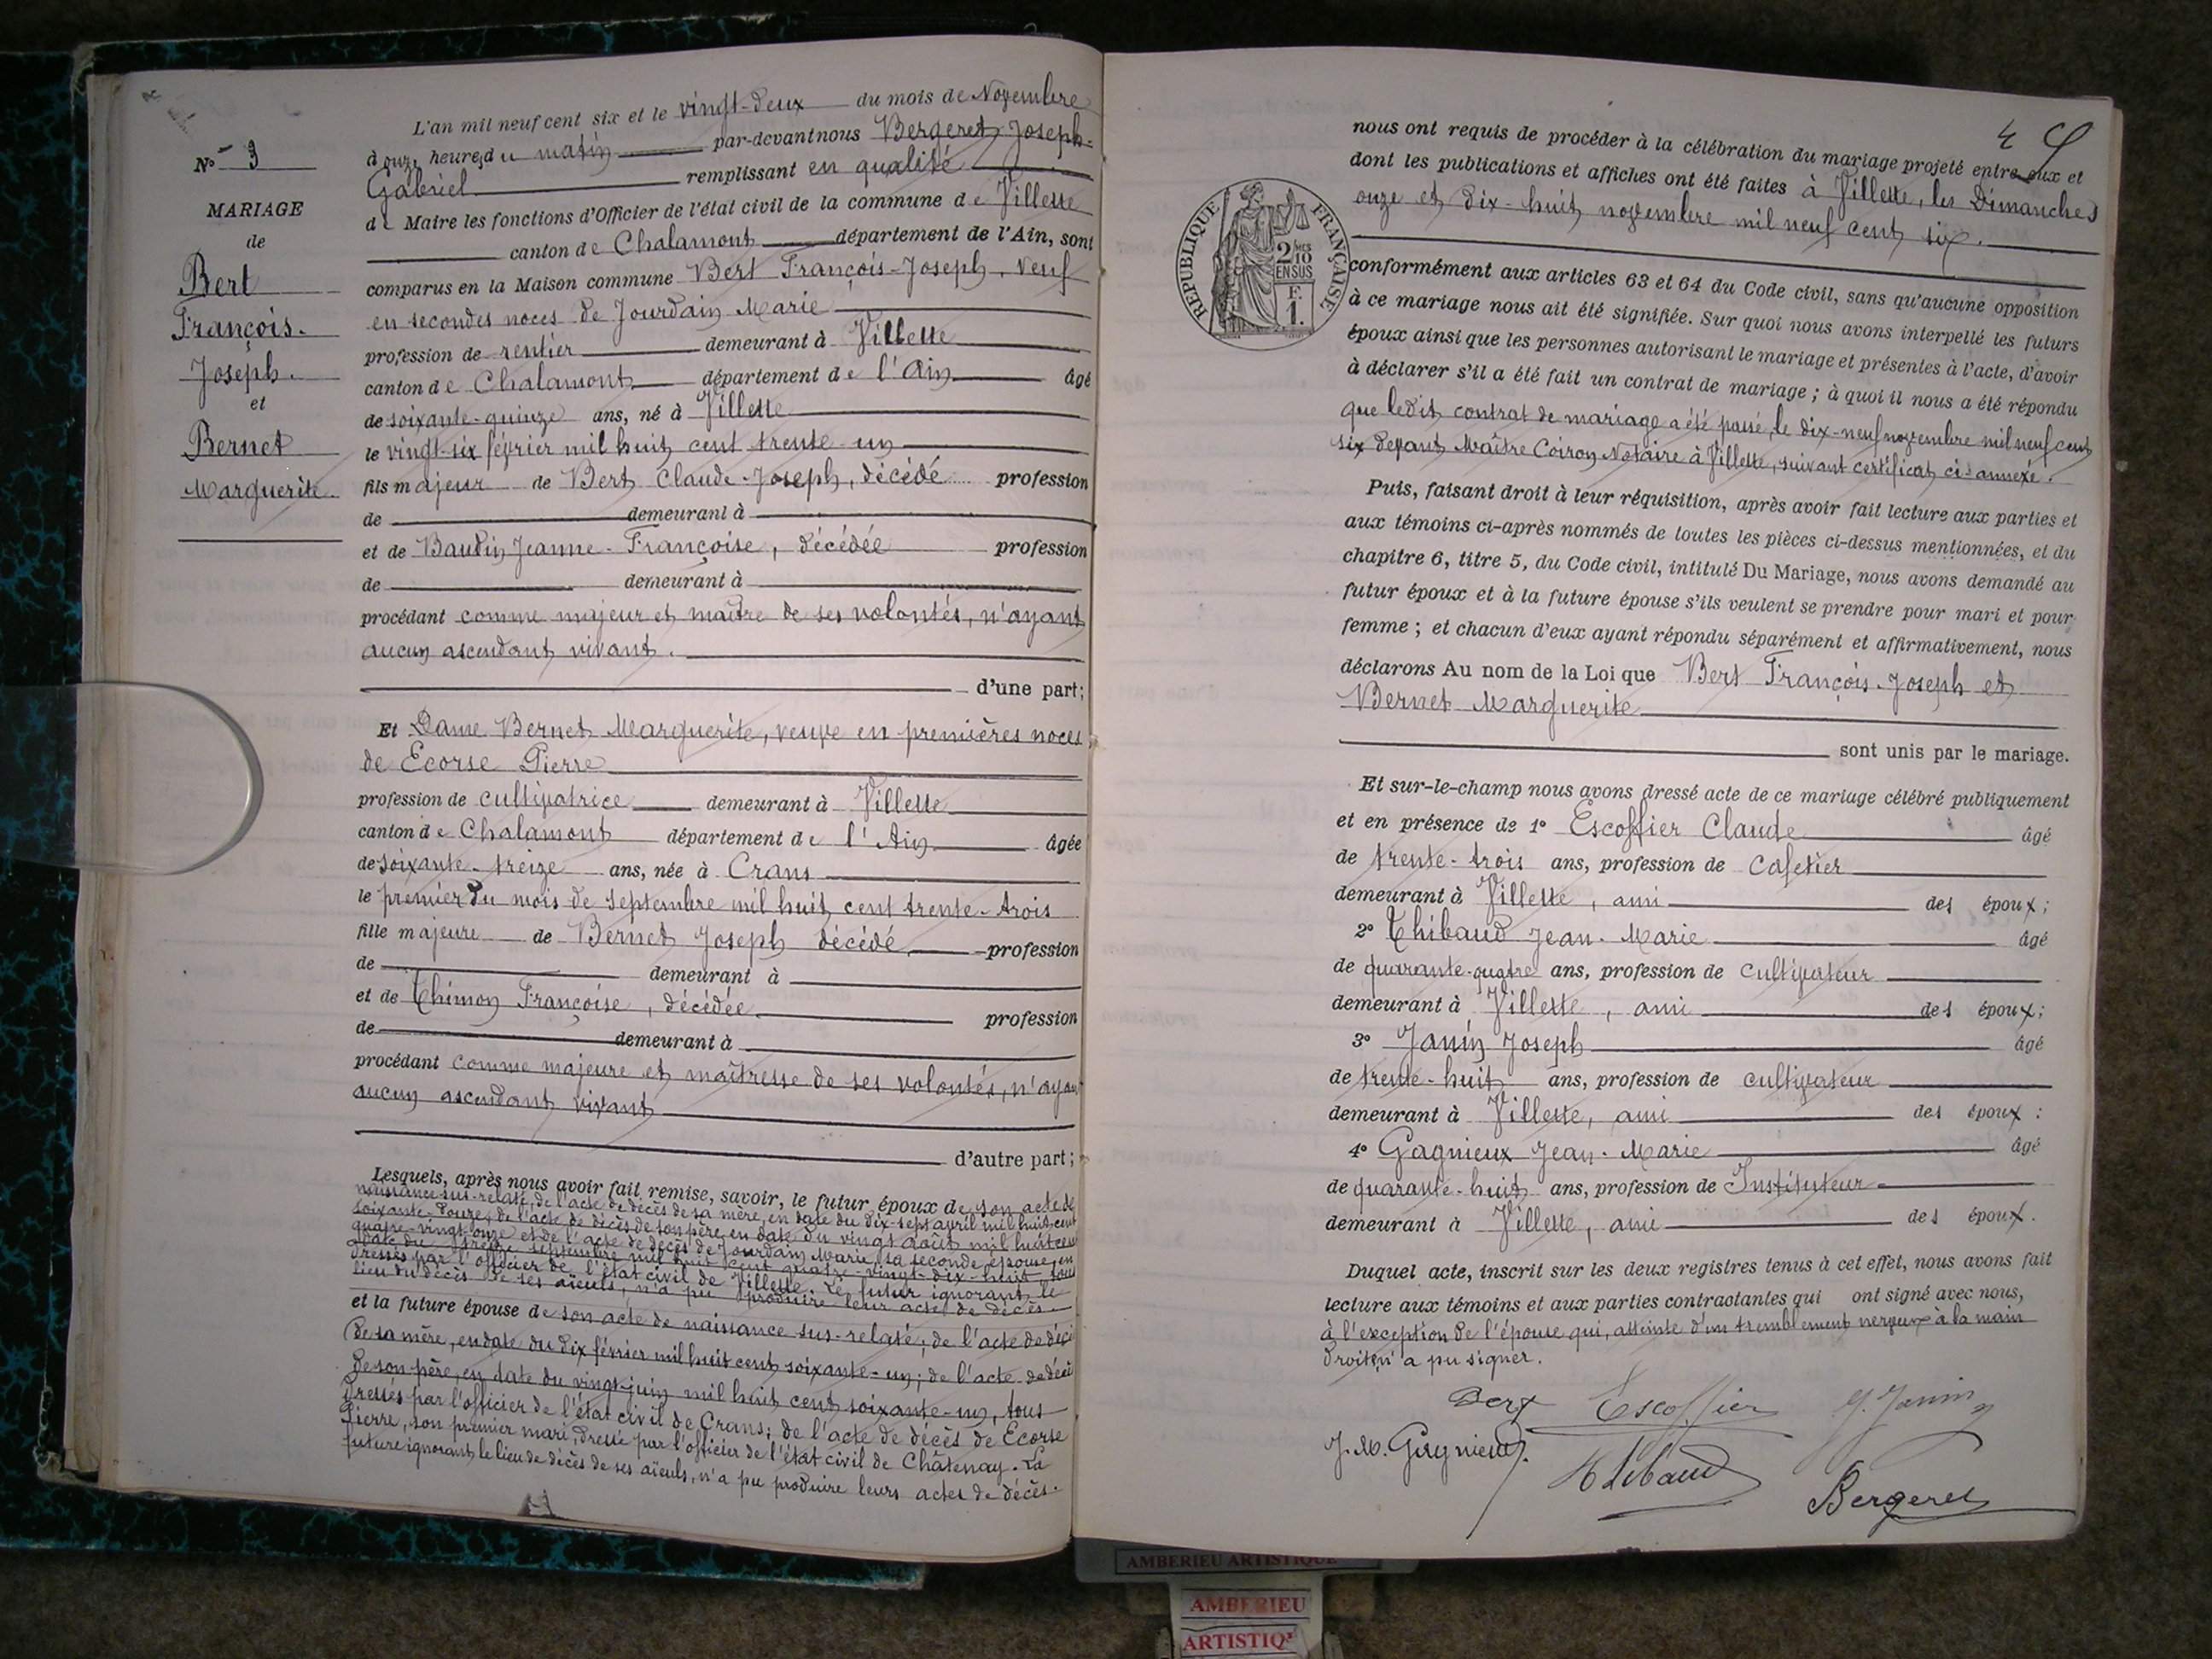 N° 3
MARIAGE
de
Bert
François-
Joseph.
et
Bernet
Marguerite.
L'an mil neuf cent six et le vingt-deux du mois de Novembre
à onze heures du matin par-devant nous Bergeret Joseph-
Gabriel remplissant en qualité
de Maire les fonctions d'Officier de l'état civil de la commune de Villette
canton de Chalamont département de l'Ain, sont
comparus en la Maison commune Bert François-Joseph, veuf
en secondes noces de Jourdain Marie
profession de rentier demeurant à Villette
canton de Chalamont département de l'Ain âgé
de soixante-quinze ans, né à Villette
le vingt-six février mil huit cent trente-un
fils majeur de Bert Claude-Joseph, décédé profession
de demeurant à
et de Baudin Jeanne-Françoise, décédée profession
de demeurant à
procédant comme majeur et maître de ses volontés, n'ayant
aucun ascendant vivant.
d'une part;
Et Dame Bernet Marguerite, veuve en premières noces
de Ecorse Pierre
profession de cultivatrice demeurant à Villette
canton de Chalamont département de l'Ain âgée
de soixante-treize ans, née à Crans
le premier du mois de septembre mil huit cent trente-trois
fille majeure de Bernet Joseph décédé profession
de demeurant à
et de Thimon Françoise, décédée profession
de demeurant à
procédant comme majeure et maîtresse de ses volontés, n'ayant
aucun ascendant vivant
d'autre part;
Lesquels, après nous avoir fait remise, savoir, le futur époux de son acte de
naissance sus-relaté, de l'acte de décès de sa mère, en date du dix-sept avril mil huit cent
soixante-douze, de l'acte de décès de son père, en date du vingt août mil huit cent
quatre-vingt-onze et de l'acte de décès de Jourdain Marie, sa seconde épouse, en
date du treize septembre mil huit cent quatre-vingt-dix-huit, tous
dressés par l'officier de l'état civil de Villette. Le futur ignorant le
lieu du décès de ses aïeuls, n'a pu produire leur actes de décès.
et la future épouse de son acte de naissance sus-relaté; de l'acte de décè
de sa mère, en date du dix février mil huit cent soixante-un; de l'acte de décè
de son père, en date du vingt juin mil huit cent soixante-un, tous
dressés par l'officier de l'état civil de Crans; de l'acte de décès de Ecorse
Pierre, son premier mari, dressé par l'officier de l'état civil de Châtenay. La
future ignorant le lieu de décès de ses aïeuls, n'a pu produire leurs actes de décès.
4
nous ont requis de procéder à la célébration du mariage projeté entre eux et
dont les publications et affiches ont été faites à Villette, les Dimanches
onze et dix-huit novembre mil neuf cent six.
REPUBLIQUE FRANÇAISE
2 MES
10
EN SUS
F.
1.
conformément aux articles 63 et 64 du Code civil, sans qu'aucune opposition
à ce mariage nous ait été signifiée. Sur quoi nous avons interpellé les futurs
époux ainsi que les personnes autorisant le mariage et présentes à l'acte, d'avoir
à déclarer s'il a été fait un contrat de mariage; à quoi il nous a été répondu
que ledit contrat de mariage a été passé, le dix-neuf novembre mil neuf cent
six devant Maître Coiron Notaire à Villette, suivant certificat ci-annexé.
Puis, faisant droit à leur réquisition, après avoir fait lecture aux parties et
aux témoins ci-après nommés de toutes les pièces ci-dessus mentionnées, et du
chapitre 6, titre 5, du Code civil, intitulé Du Mariage, nous avons demandé au
futur époux et à la future épouse s'ils veulent se prendre pour mari et pour
femme; et chacun d'eux ayant répondu séparément et affirmativement, nous
déclarons Au nom de la Loi que Bert François-Joseph et
Bernet Marguerite
sont unis par le mariage.
Et sur-le-champ nous avons dressé acte de ce mariage célébré publiquement
et en présence de 1° Escoffier Claude âgé
de trente-trois ans, profession de cafetier
demeurant à Villette, ami des époux;
2° Thibaud Jean-Marie âgé
de quarante-quatre ans, profession de cultivateur
demeurant à Villette, ami des époux;
3° Janin Joseph âgé
de trente-huit ans, profession de cultivateur
demeurant à Villette, ami des époux:
4° Gagnieux Jean-Marie âgé
de quarante-huit ans, profession de Instituteur
demeurant à Villette, ami des époux.
Duquel acte, inscrit sur les deux registres tenus à cet effet, nous avons fait
lecture aux témoins et aux parties contractantes qui ont signé avec nous,
à l'exception de l'épouse qui, atteinte d'un tremblement nerveux à la main
droite, n'a pu signer.
Bert Escoffier J. Janin
J. M. Gagnieux Thibaud
Bergeret
AMBERIEU ARTISTIQUE
AMBERIEU
ARTISTIQ